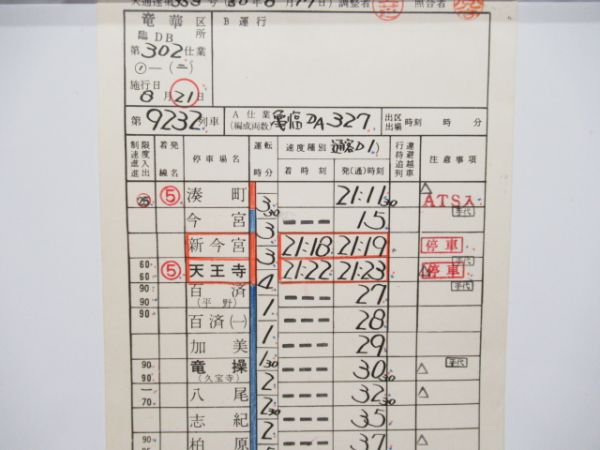 竜華区所
臨DB
第302仕業
施行日
8月21日
B 運行
調整者 照合者
第9232列車
A 仕業
(編成両数) DA-327
出区
出場 時刻 時 分
制限速度 進入 進出
着発線名
停車場名
運転時分
速度種別 通客D1
着時刻 発(通)時刻
行違 待避 追越 列車
注意事項
25 ⑤ 湊町 3 30 21:11 30 △ ATS入
今宮 3 15
新今宮 3 21:18 21:19 停車
60 60 ⑤ 天王寺 4 21:22 21:23 停車
90 90 百済 (平野) 1 27
90 百済(一) 1 28
加美 1 30 29
90 90 竜操 (久宝寺) 2 30 30 △
一 70 八尾 2 32 30 △
志紀 2 35
90 柏原 37